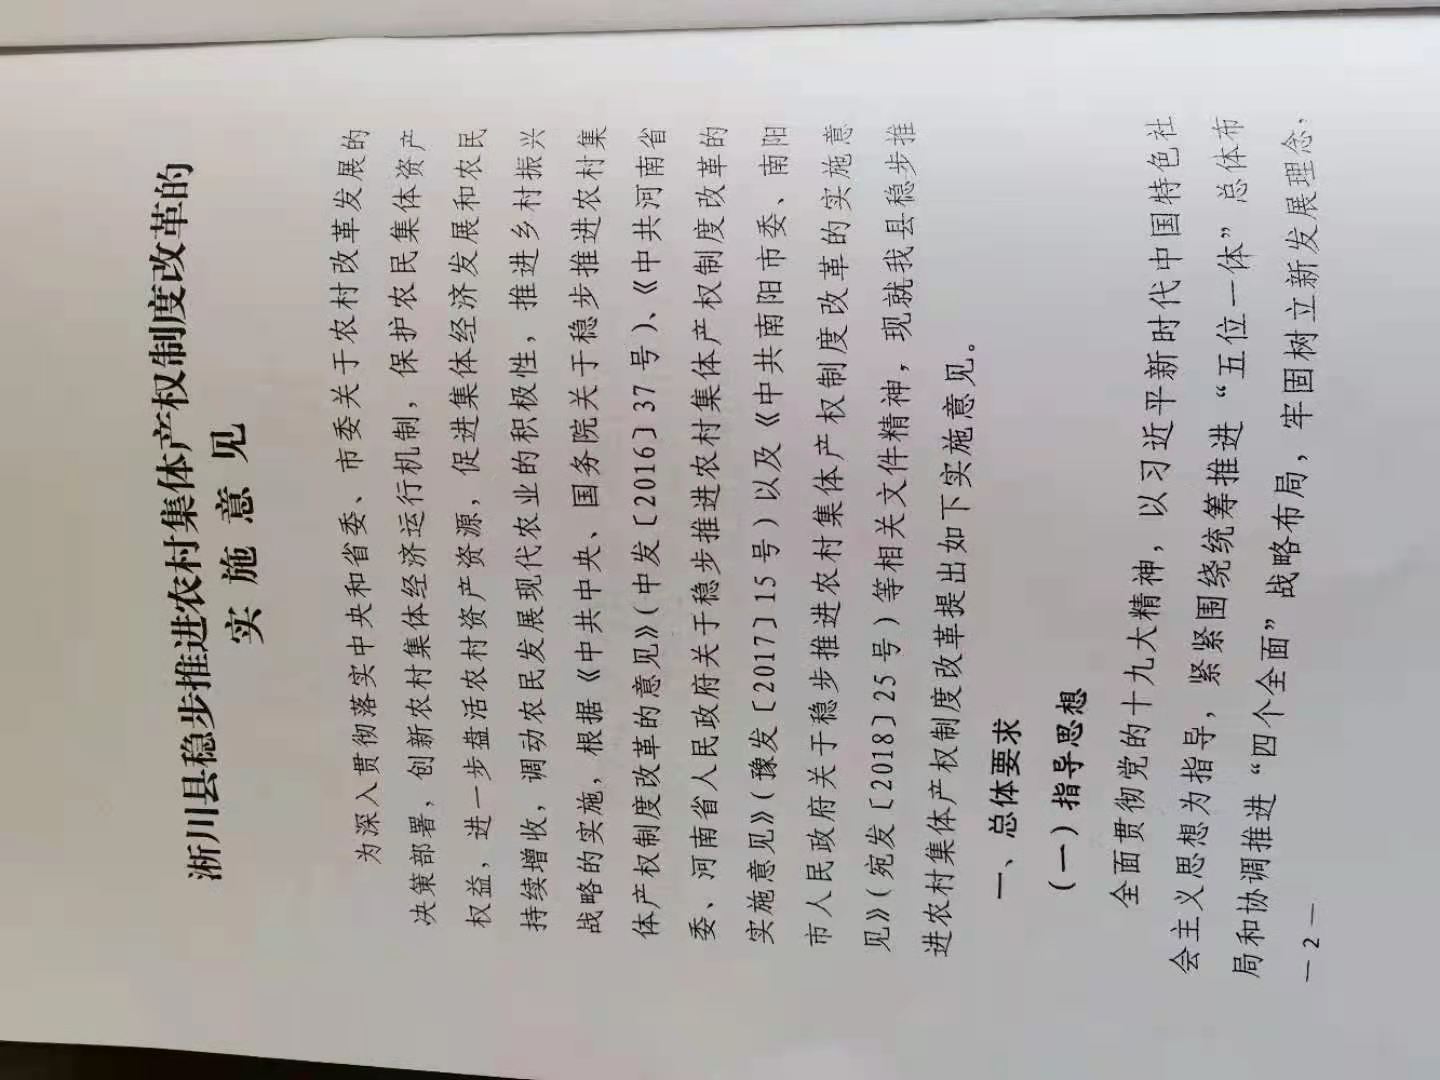 淅川县稳步推进农村集体产权制度改革的
实施意见
为深入贯彻落实中央和省委、市委关于农村改革发展的
决策部署，创新农村集体经济运行机制，保护农民集体资产
权益，进一步盘活农村资产资源，促进集体经济发展和农民
持续增收，调动农民发展现代农业的积极性，推进乡村振兴
战略的实施，根据《中共中央、国务院关于稳步推进农村集
体产权制度改革的意见》（中发〔2016〕37号）、《中共河南省
委、河南省人民政府关于稳步推进农村集体产权制度改革的
实施意见》（豫发〔2017〕15号）以及《中共南阳市委、南阳
市人民政府关于稳步推进农村集体产权制度改革的实施意
见》（宛发〔2018〕25号）等相关文件精神，现就我县稳步推
进农村集体产权制度改革提出如下实施意见。
一、总体要求
（一）指导思想
全面贯彻党的十九大精神，以习近平新时代中国特色社
会主义思想为指导，紧紧围绕统筹推进“五位一体”总体布
局和协调推进“四个全面”战略布局，牢固树立新发展理念，
—2—